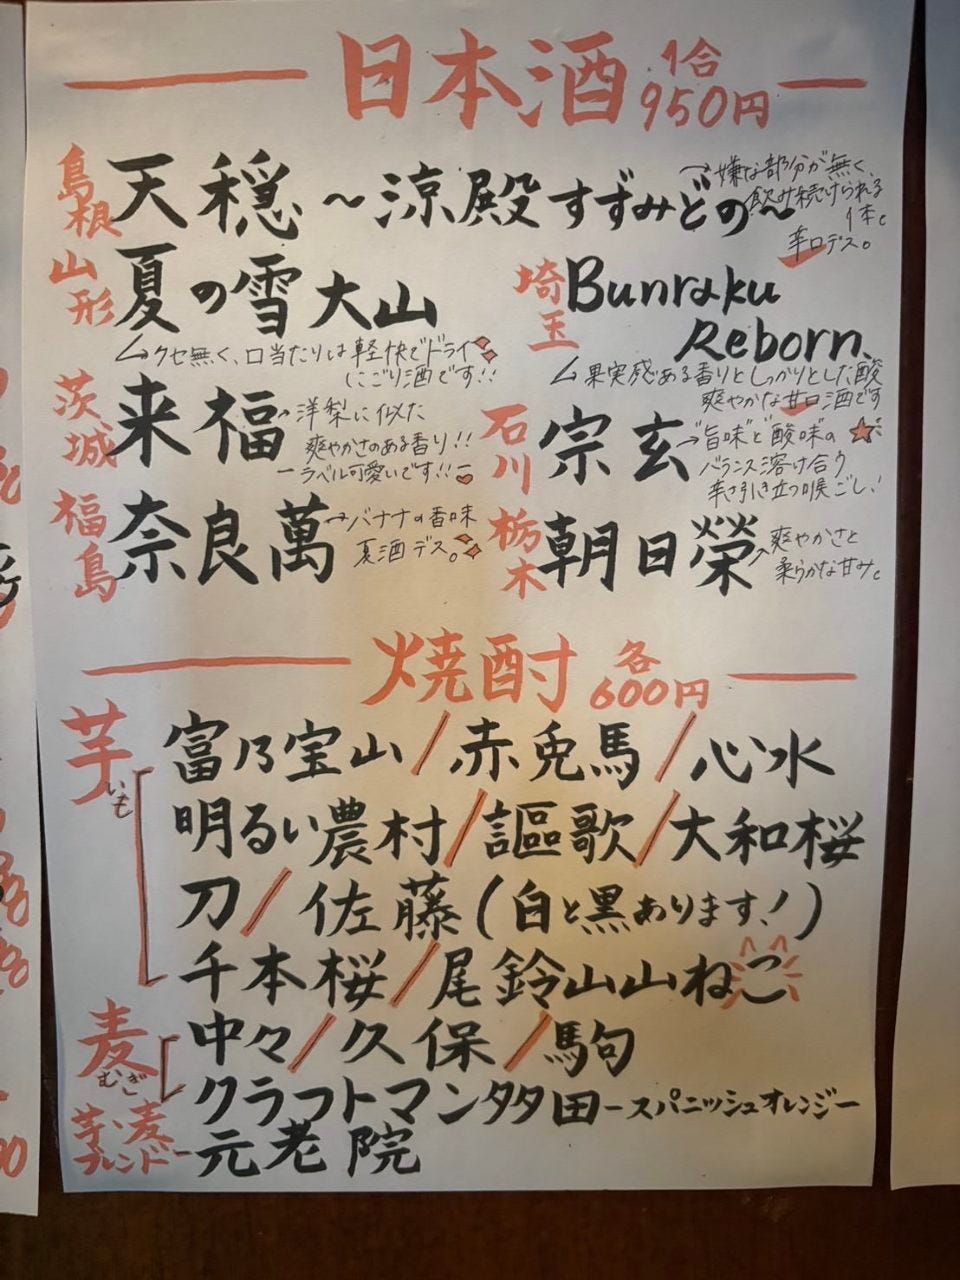 日本酒 1合 950円
島根 天穏 ～涼殿 すずみどの～
→嫌な部分が無く、
飲み続けられる
1本。
辛口デス。
山形 夏の雪 大山
→クセ無く、口当たりは軽快でドライ
にごり酒です!!
埼玉 Bunraku
Reborn
→果実感ある香りとしっかりとした酸
爽やかな甘口酒です
茨城 来福
→洋梨に似た
爽やかさのある香り!!
ーラベル可愛いです!!ー
石川 宗玄
→"旨味"と"酸味"の
バランス溶け合う
辛さ引き立つ喉ごし!
福島 奈良萬
→バナナの香味
夏酒デス。
栃木 朝日榮
→爽やかさと
柔らかな甘み。
焼酎 各600円
芋 いも
富乃宝山/赤兎馬/心水
明るい農村/謳歌/大和桜
刀/佐藤(白と黒あります!)
千本桜/尾鈴山山ねこ
麦 むぎ
中々/久保/駒
クラフトマンタタ田－スパニッシュオレンジー
芋・麦
ブレンドー 元老院